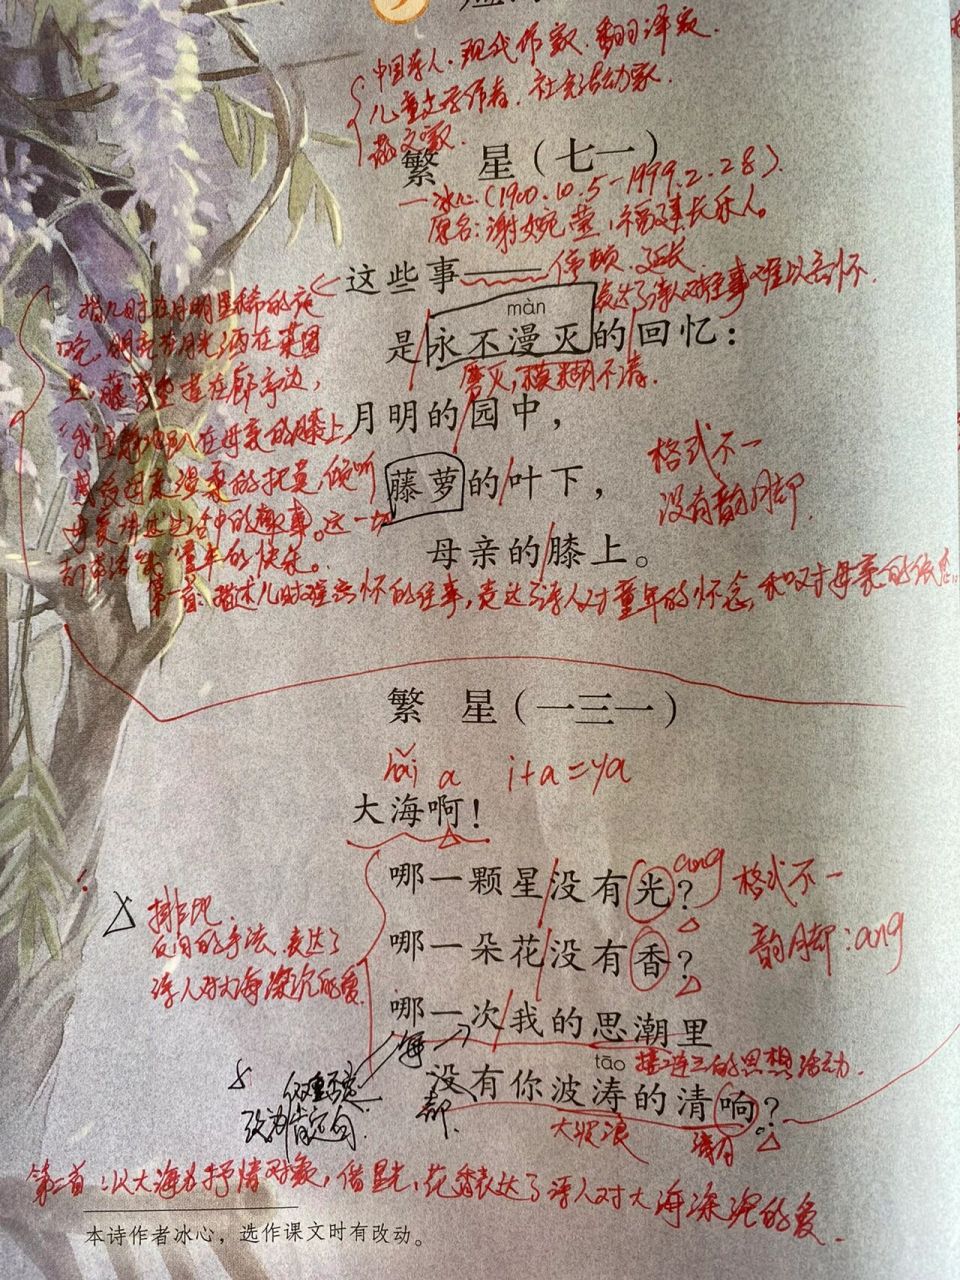 中国诗人、现代作家、翻译家、
儿童文学作者、社会活动家、
散文家。
繁 星（七一）
—冰心（1900.10.5-1999.2.28）
原名：谢婉莹，福建长乐人。
这些事——
停顿、延长
表达了诗人对往事难以忘怀.
màn
是永不漫灭的回忆：
磨灭，模糊不清.
月明的园中，
藤萝的叶下，
母亲的膝上。
指儿时在月明星稀的夜
晚，
旦，藤萝垂在廊亭边，
在母亲的膝上，
的抚摸，倾听
中的趣事。这一切
童年的快乐。
格式不一
没有韵脚
第一首：描述儿时难忘怀的往事，表达了诗人对童年的怀念，和对母亲的依恋.
繁 星（一三一）
hǎi a i+a=ya
大海啊！
哪一颗星没有光？
ang
哪一朵花没有香？
哪一次我的思潮里
接二连三的思想活动.
tāo
没有你波涛的清响？
大波浪
格式不一
韵脚：ang
排比
反问的手法，表达了
诗人对大海深沉的爱.
每
都
双重否定
改为肯定句.
第二首：以大海为抒情对象，借星光，花香表达了诗人对大海深沉的爱.
本诗作者冰心，选作课文时有改动。